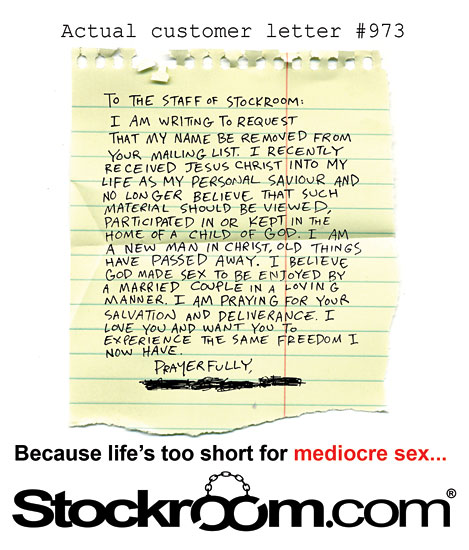 Actual customer letter #973
TO THE STAFF OF STOCKROOM:
I AM WRITING TO REQUEST
THAT MY NAME BE REMOVED FROM
YOUR MAILING LIST. I RECENTLY
RECEIVED JESUS CHRIST INTO MY
LIFE AS MY PERSONAL SAVIOUR AND
NO LONGER BELIEVE THAT SUCH
MATERIAL SHOULD BE VIEWED,
PARTICIPATED IN OR KEPT IN THE
HOME OF A CHILD OF GOD. I AM
A NEW MAN IN CHRIST, OLD THINGS
HAVE PASSED AWAY. I BELIEVE
GOD MADE SEX TO BE ENJOYED BY
A MARRIED COUPLE IN A LOVING
MANNER. I AM PRAYING FOR YOUR
SALVATION AND DELIVERANCE. I
LOVE YOU AND WANT YOU TO
EXPERIENCE THE SAME FREEDOM I
NOW HAVE.
PRAYERFULLY,
Because life's too short for mediocre sex...
Stockroom.com®